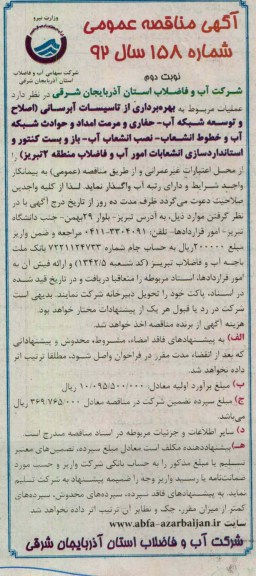 آگهی مناقصه عمومی
شماره ۱۵۸ سال ۹۲
وزارت نیرو
شرکت سهامی آب و فاضلاب
استان آذربایجان شرقی
نوبت دوم
شرکت آب و فاضلاب استان آذربایجان شرقی در نظر دارد
عملیات مربوط به بهره‌برداری از تاسیسات آبرسانی (اصلاح
و توسعه شبکه آب- حفاری و مرمت امداد و حوادث شبکه
آب و خطوط انشعاب- نصب انشعاب آب- باز و بست کنتور و
استانداردسازی انشعابات امور آب و فاضلاب منطقه ۲تبریز) را
از محل اعتبارات غیرعمرانی و از طریق مناقصه (عمومی) به پیمانکار
واجد شرایط و دارای رتبه آب واگذار نماید. لذا از کلیه واجدین
صلاحیت دعوت می‌گردد ظرف مدت ده روز از تاریخ درج آگهی با در
نظر گرفتن موارد ذیل، به آدرس تبریز- بلوار ۲۹بهمن- جنب دانشگاه
تبریز- امور قراردادها- تلفن: ۳۳۰۴۰۹۱-۰۴۱۱ مراجعه و ضمن واریز
مبلغ ۲۰۰۰۰۰ریال به حساب جام شماره ۷۲۲۱۱۲۴۷۳۳ بانک ملت
باجه آب و فاضلاب تبریز (کد شعبه ۱۳۴۲/۵) و ارائه فیش آن به
امور قراردادها، اسناد مربوطه را متعاقبا دریافت و در تاریخ قید شده
در اسناد، پاکت خود را تحویل دبیرخانه شرکت نمایند. بدیهی است
شرکت در رد یا قبول هر یک از پیشنهادات مختار خواهد بود.
هزینه آگهی از برنده مناقصه اخذ خواهد شد.
الف) به پیشنهادهای فاقد امضاء، مشروطه، مخدوش و پیشنهاداتی
که بعد از انقضاء مدت مقرر در فراخوان واصل شود، مطلقا ترتیب اثر
داده نخواهد شد.
ب) مبلغ برآورد اولیه معادل: ۱۰/۰۹۵/۵۰۰/۰۰۰ ریال
ج) مبلغ سپرده تضمین شرکت در مناقصه معادل ۳۶۹/۷۶۵/۰۰۰ ریال
می‌باشد.
د) سایر اطلاعات و جزئیات مربوطه در اسناد مناقصه مندرج است.
هـ) پیشنهاددهنده مکلف است معادل مبلغ سپرده، تضمین‌های معتبر
تسلیم یا مبلغ مذکور را به حساب بانکی شرکت واریز و حسب مورد
ضمانت‌نامه یا رسید واریز وجه را ضمیمه پیشنهاد به شرکت تسلیم
نماید. به پیشنهادهای فاقد سپرده، سپرده‌های مخدوش، سپرده‌های
کمتر از میزان مقرر، چک و نظایر آن ترتیب اثر داده نخواهد شد.
سایت www.abfa-azarbaijan.ir
شرکت آب و فاضلاب استان آذربایجان شرقی